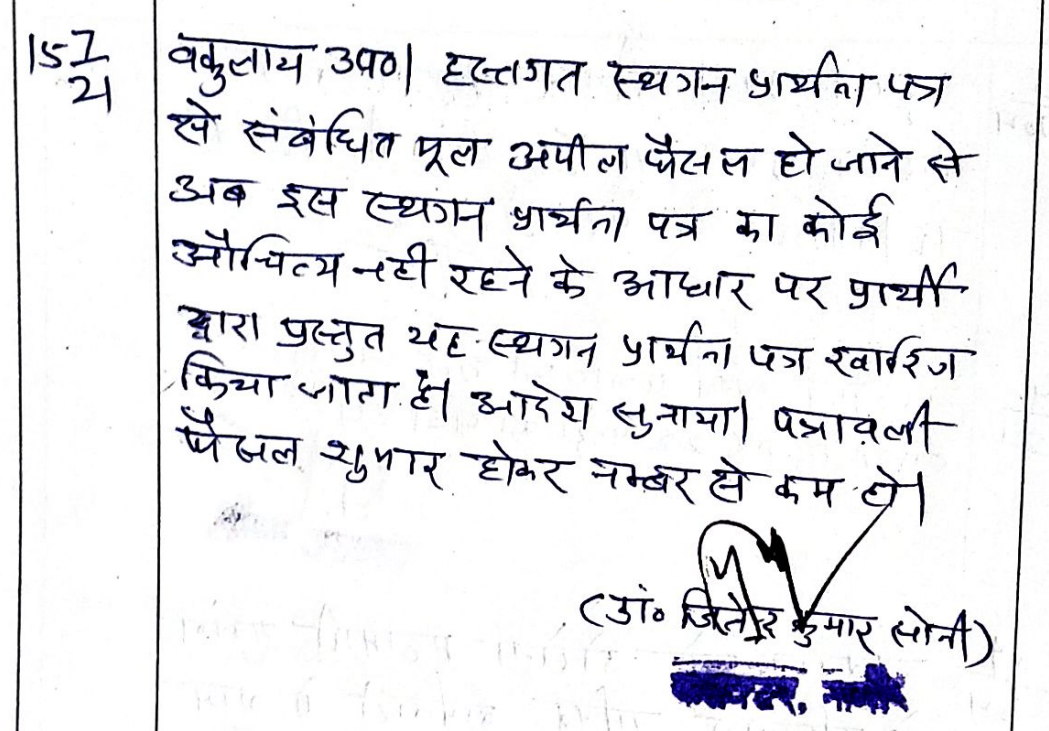 15 7/21
वकुलाय उप०। हस्तगत स्थगन प्रार्थना पत्र
से संबंधित मूल अपील फैसल हो जाने से
अब इस स्थगन प्रार्थना पत्र का कोई
औचित्य नही रहने के आधार पर प्रार्थी
द्वारा प्रस्तुत यह स्थगन प्रार्थना पत्र खारिज
किया जाता है। आदेश सुनाया। पत्रावली
फैसल शुमार होकर नम्बर से कम हो।
(डॉ० जितेन्द्र कुमार सोनी)